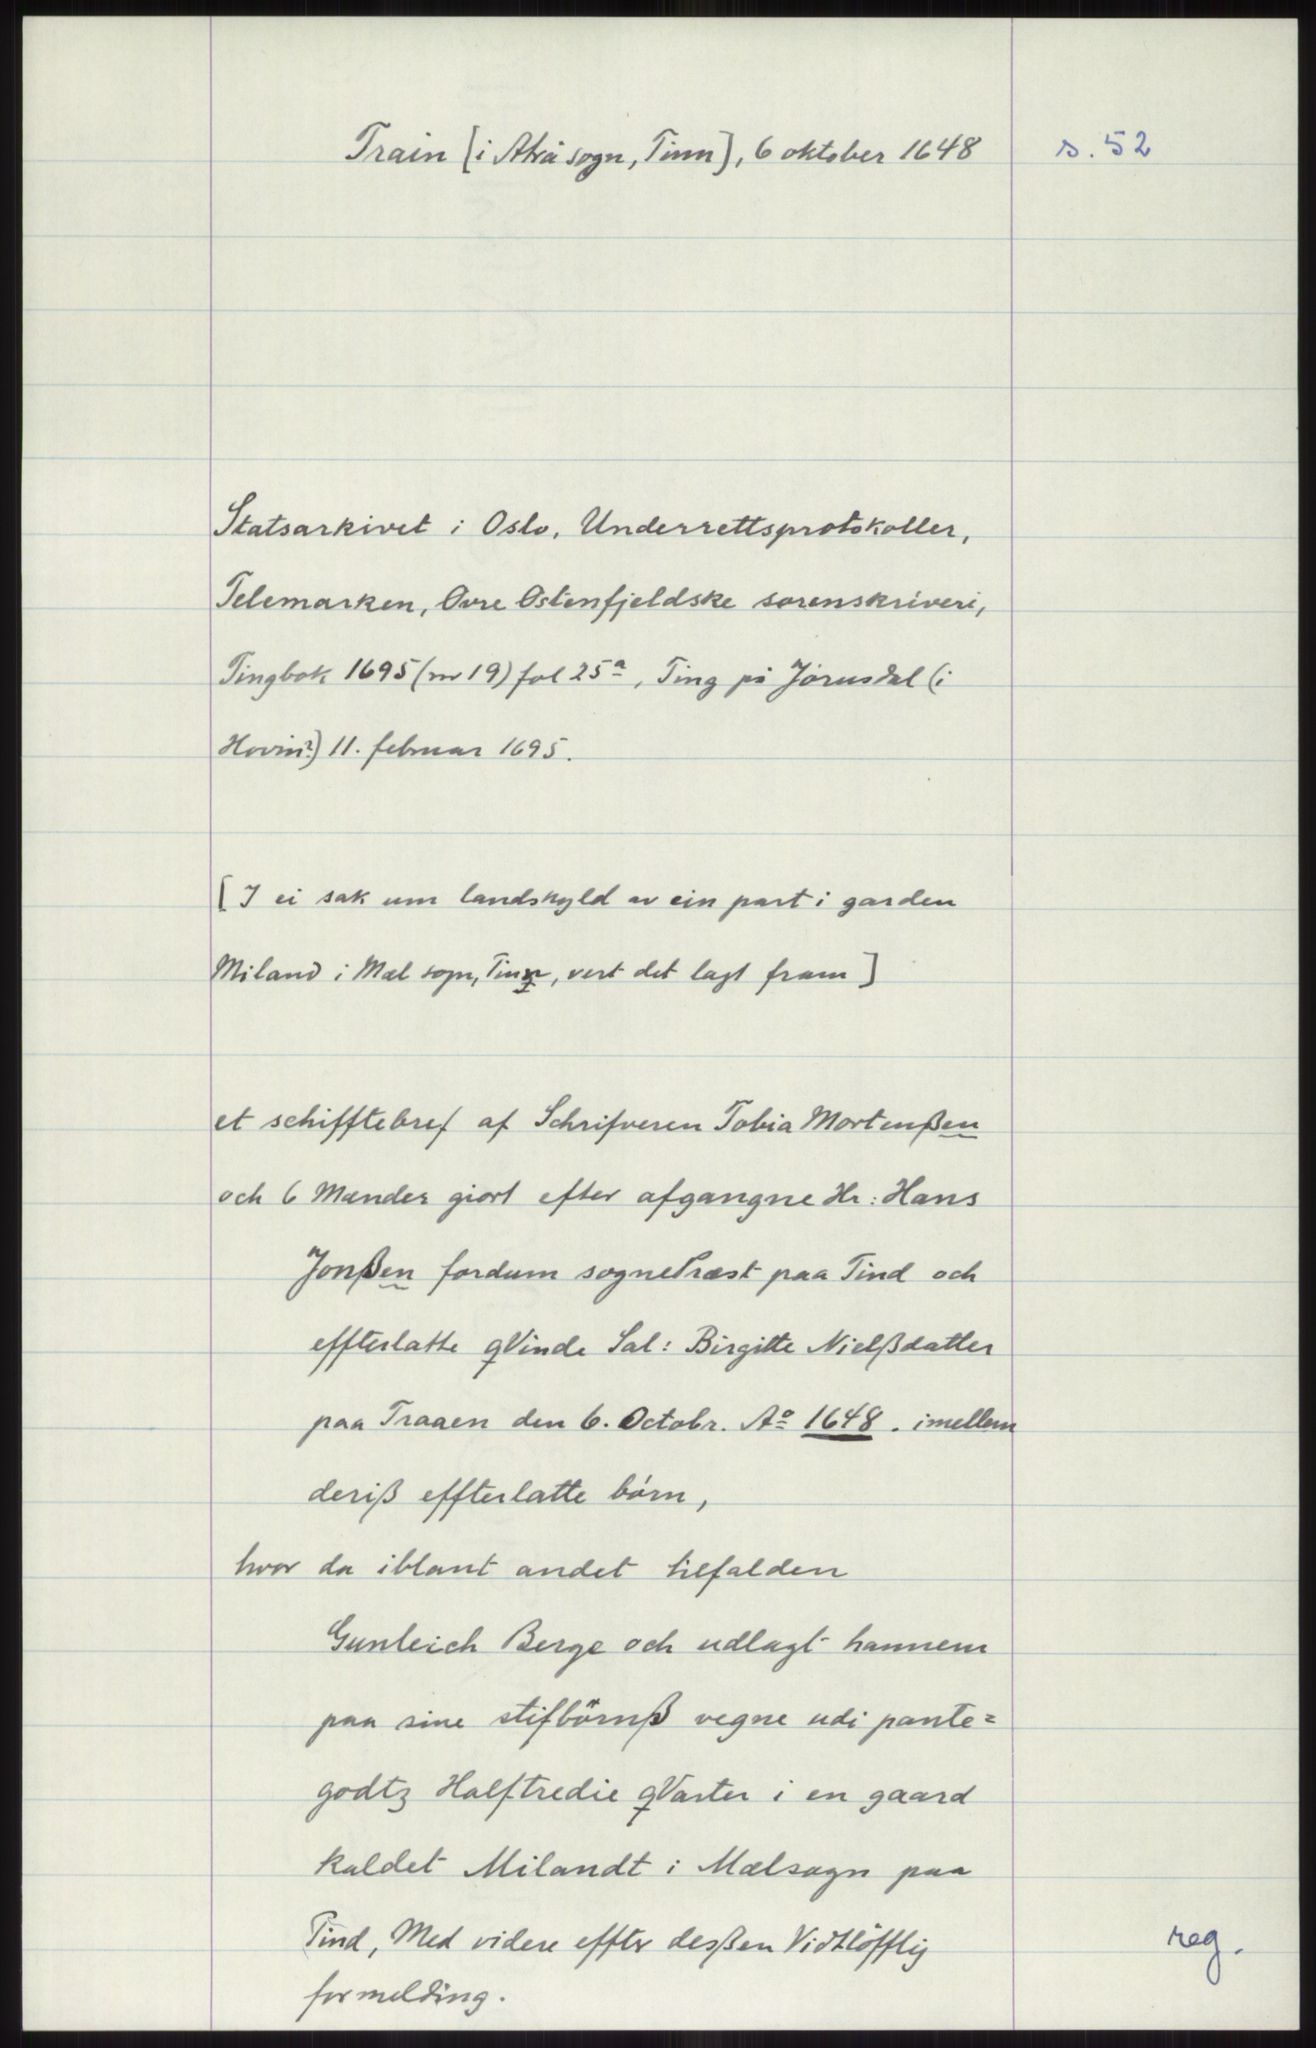 Train [i Atrå sogn, Tinn], 6 oktober 1648
s. 52
Statsarkivet i Oslo, Underrettsprotokoller,
Telemarken, Øvre Østenfjeldske sorenskriveri,
Tingbok 1695 (nr 19) fol 25a, Ting på Jørusdal (i
Hovin?) 11. februar 1695.
[I ei sak um landskyld av ein part i garden
Miland i Mæl sogn, Tinn, vert det lagt fram]
et schifftebref af Schrifveren Tobia Mortenßen
och 6 Mænder giort efter afgangne Hr: Hans
Jonßen fordum sognePræst paa Tind och
effterlatte qVinde Sal: Birgitte Nielßdatter
paa Traaen den 6. Octobr. Ao 1648. imellem
deriß effterlatte börn,
hvor da iblant andet tilfalden
Gunleich Berge och udlagt hannem
paa sine stifbörnß vegne udi pante=
godtz Halftredie qVarter i en gaard
kaldet Milandt i Mælsogn paa
Tind, Med videre effter desßen Vidtlöfflig
formelding.
reg.